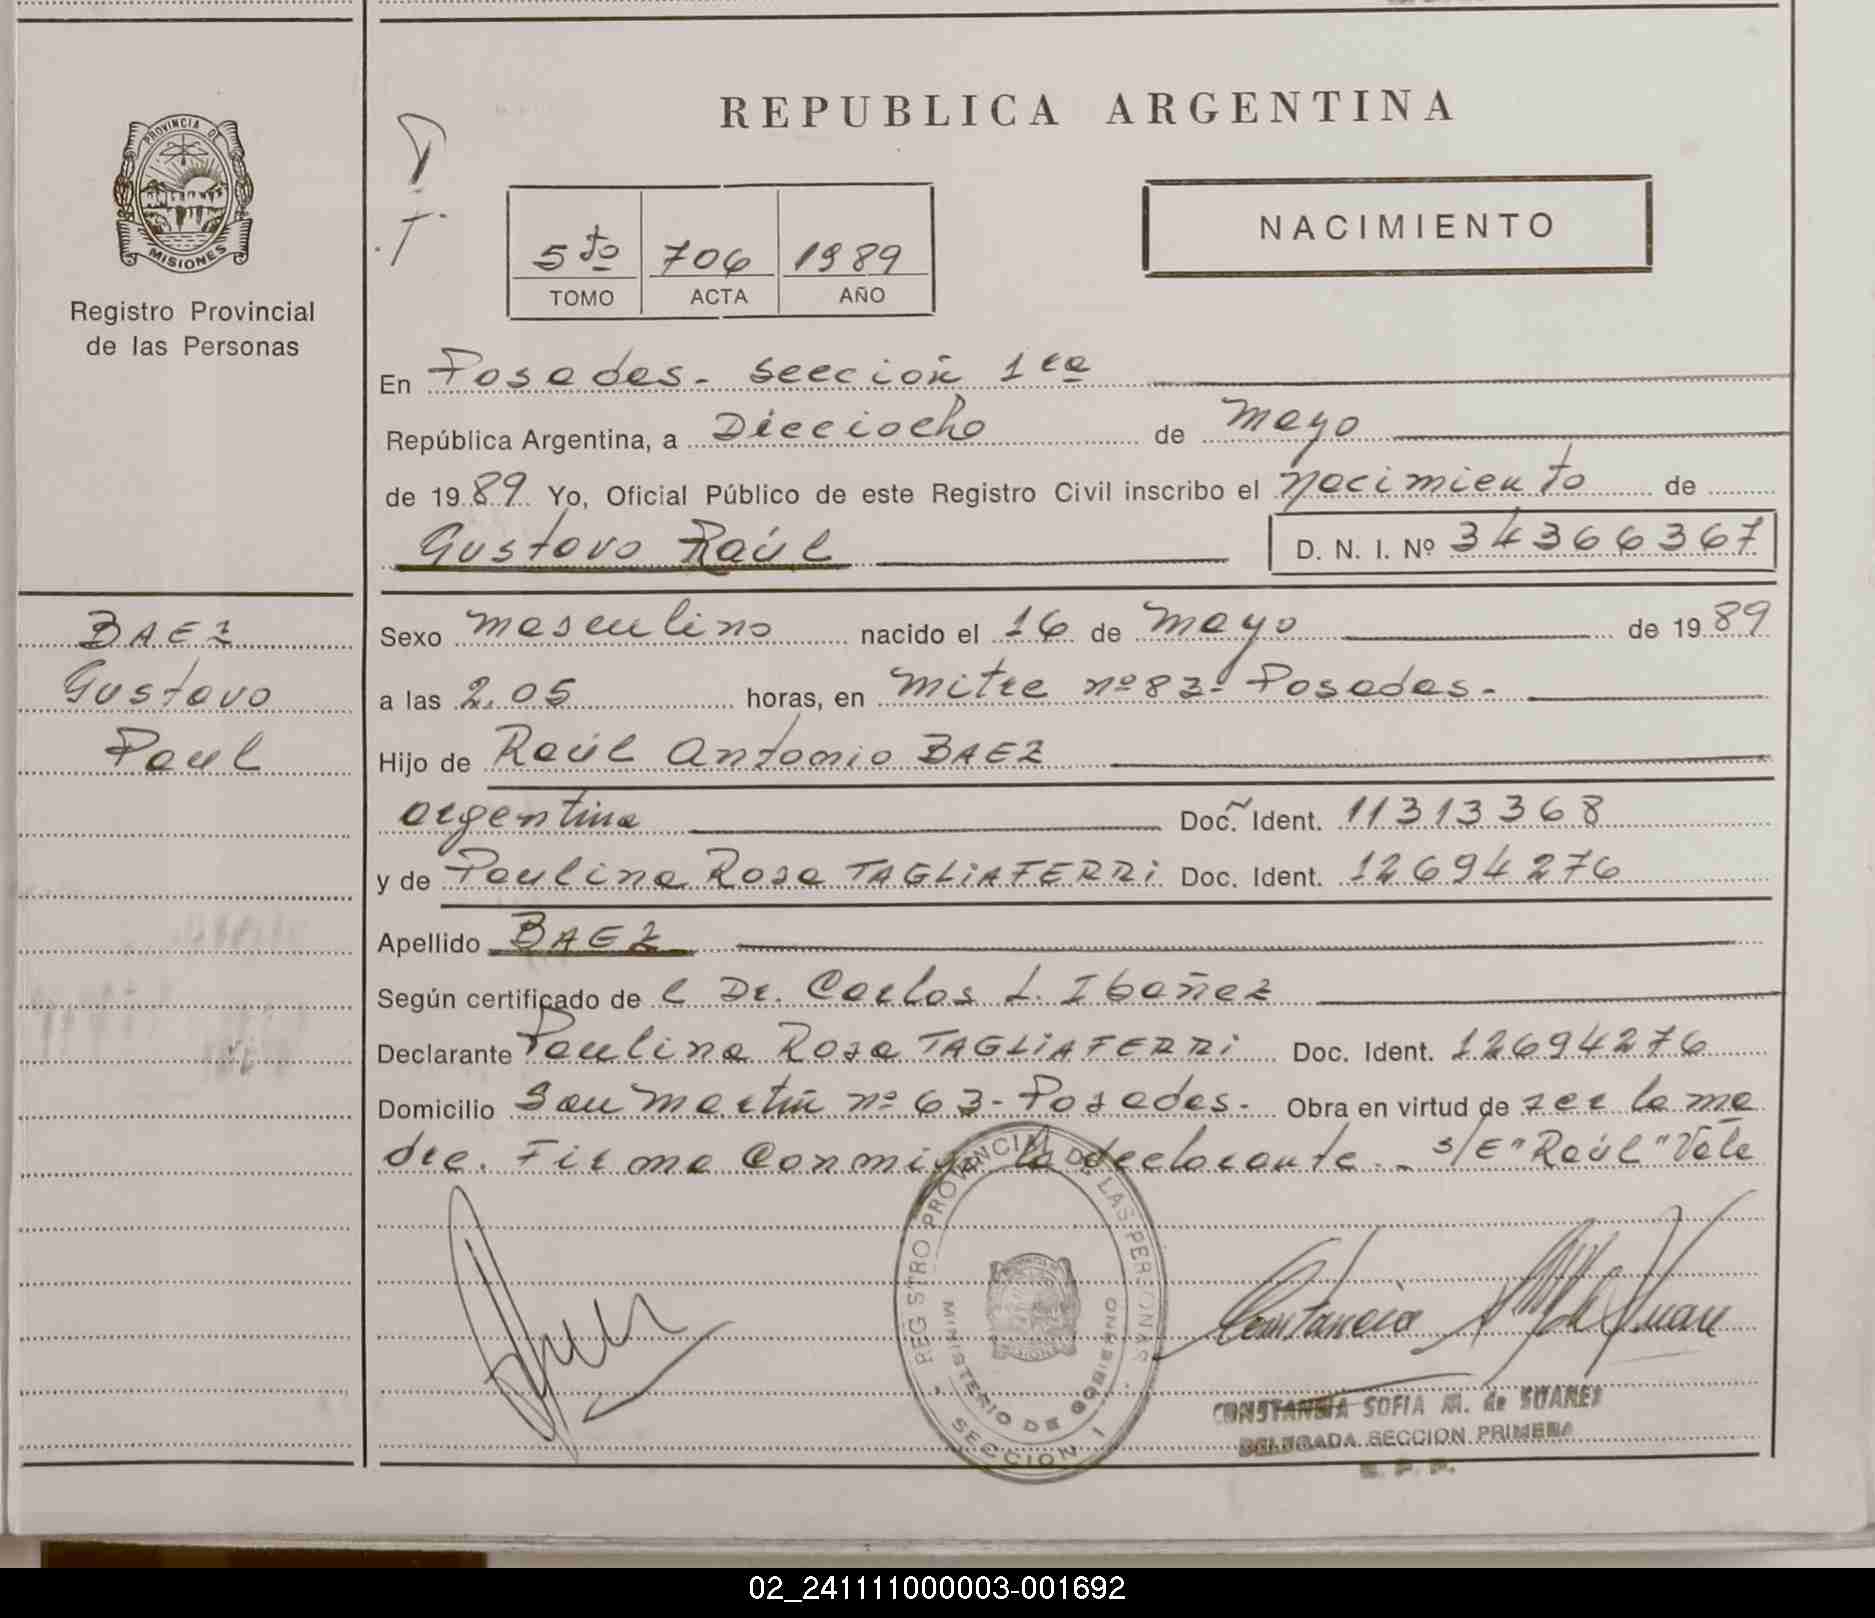 REPUBLICA ARGENTINA
PROVINCIA DE
MISIONES
Registro Provincial
de las Personas
5to 706 1989
TOMO ACTA AÑO
NACIMIENTO
En Posadas. Sección 1ra
República Argentina, a Dieciocho de Mayo
de 1989 Yo, Oficial Público de este Registro Civil inscribo el Nacimiento de
Gustavo Raúl D. N. I. Nº 34366367
BAEZ
Gustavo
Raul
Sexo Masculino nacido el 16 de Mayo de 1989
a las 2.05 horas, en Mitre nº 83- Posadas.-
Hijo de Raúl Antonio BAEZ
argentina Doc. Ident. 11313368
y de Paulina Rosa TAGLIAFERRI Doc. Ident. 12694276
Apellido BAEZ
Según certificado de l Dr. Carlos L. Ibañez
Declarante Paulina Rosa TAGLIAFERRI Doc. Ident. 12694276
Domicilio San Martin nº 63- Posadas.- Obra en virtud de ser la ma
dre. Firma Conmigo la declarante.- s/E "Raúl" Vale
REGISTRO PROVINCIAL DE LAS PERSONAS
MINISTERIO DE GOBIERNO
SECCION I
CONSTANCIA SOFIA M. de SUAREZ
DELEGADA SECCION PRIMERA
R. P. P.
02_241111000003-001692